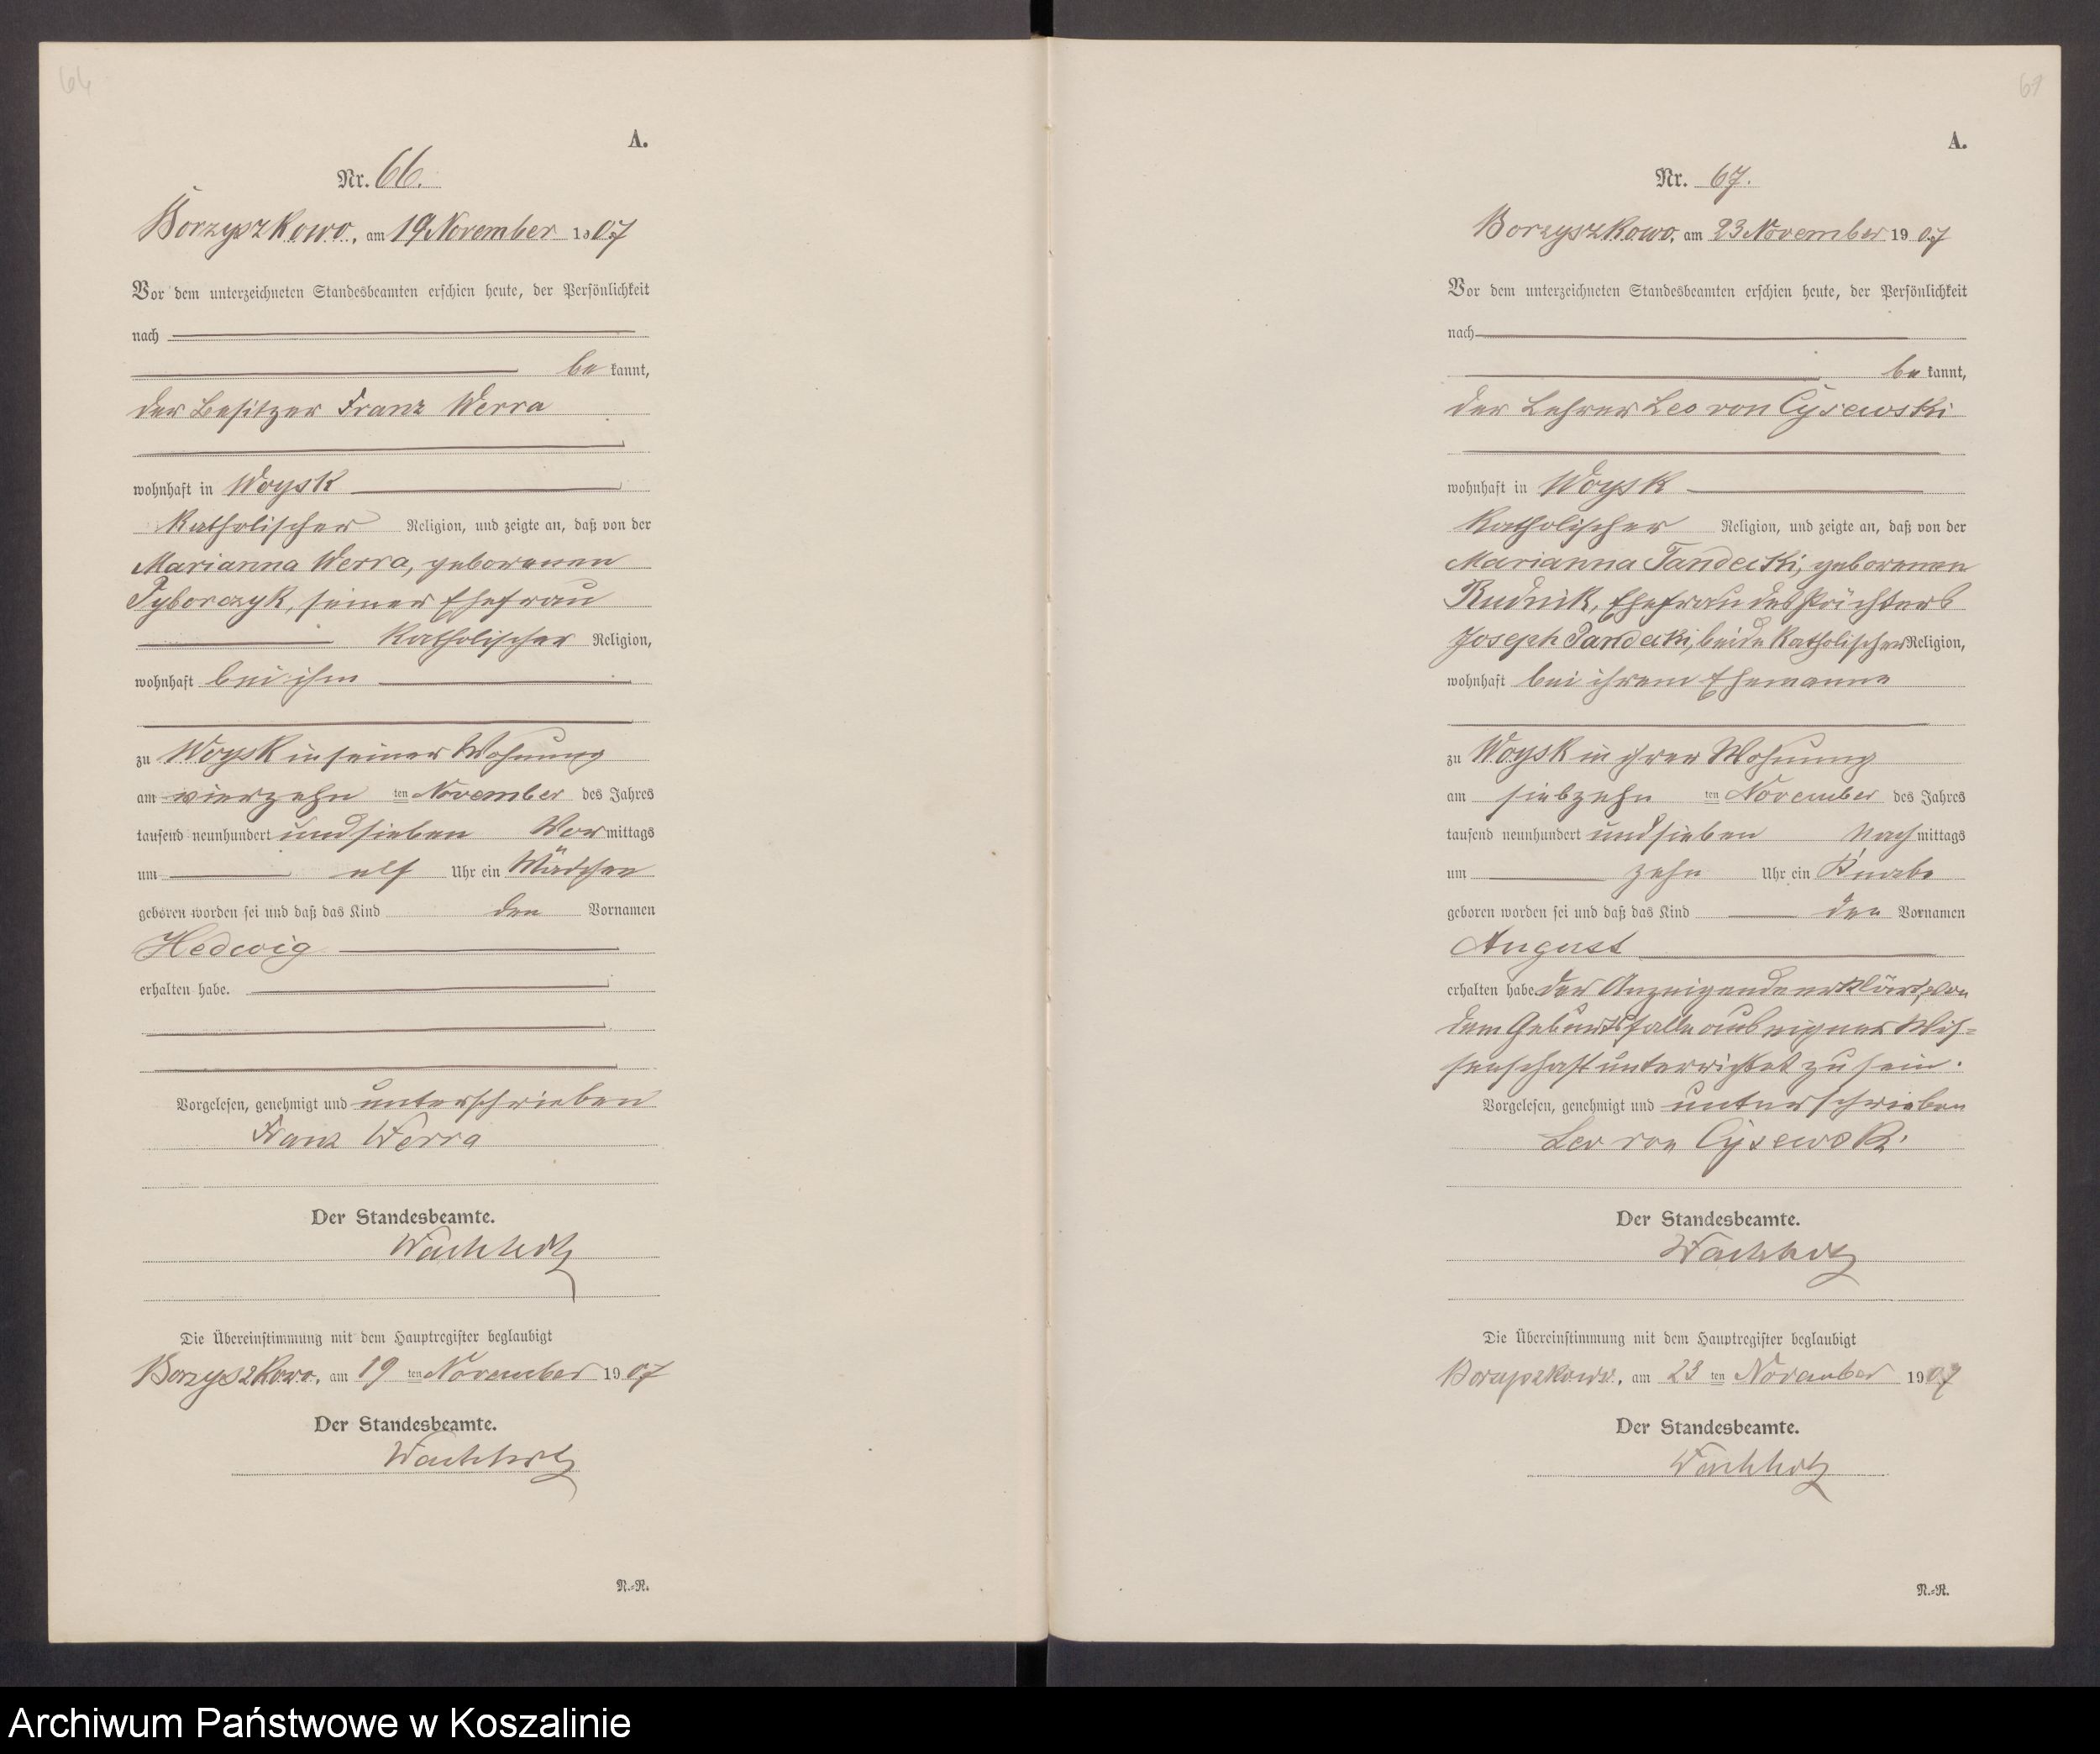 64
A.
Nr. 66.
Borzyszkowo, am 19 November 1907
Vor dem unterzeichneten Standesbeamten erschien heute, der Persönlichkeit
nach
be kannt,
der Besitzer Franz Werra
wohnhaft in Woysk
katholischer Religion, und zeigte an, daß von der
Marianna Werra, geborenen
Tyborczyk, seiner Ehefrau
katholischer Religion,
wohnhaft bei ihm
zu Woysk in seiner Wohnung
am vierzehn ten November des Jahres
tausend neunhundert und sieben Vor mittags
um elf Uhr ein Mädchen
geboren worden sei und daß das Kind den Vornamen
Hedwig
erhalten habe.
Vorgelesen, genehmigt und unterschrieben
Franz Werra
Der Standesbeamte.
Wachholz
Die Übereinstimmung mit dem Hauptregister beglaubigt
Borzyszkowo, am 19 ten November 1907
Der Standesbeamte.
Wachholz
N.-R.
67
A.
Nr. 67.
Borzyszkowo, am 23 November 1907
Vor dem unterzeichneten Standesbeamten erschien heute, der Persönlichkeit
nach
be kannt,
der Lehrer Leo von Cysewski
wohnhaft in Woysk
katholischer Religion, und zeigte an, daß von der
Marianna Tandecki, geborenen
Rudnik, Ehefrau des Pächters
Joseph Tandecki, beide katholischer Religion,
wohnhaft bei ihrem Ehemanne
zu Woysk in ihrer Wohnung
am siebzehn ten November des Jahres
tausend neunhundert und sieben Nach mittags
um zehn Uhr ein Knabe
geboren worden sei und daß das Kind den Vornamen
August
erhalten habe. Der Anzeigende erklärt, von
dem Geburtsfalle aus eigner Wis=
senschaft unterrichtet zu sein.
Vorgelesen, genehmigt und unterschrieben
Leo von Cysewski.
Der Standesbeamte.
Wachholz
Die Übereinstimmung mit dem Hauptregister beglaubigt
Borzyszkowo, am 23 ten November 1907
Der Standesbeamte.
Wachholz
N.-R.
Archiwum Państwowe w Koszalinie